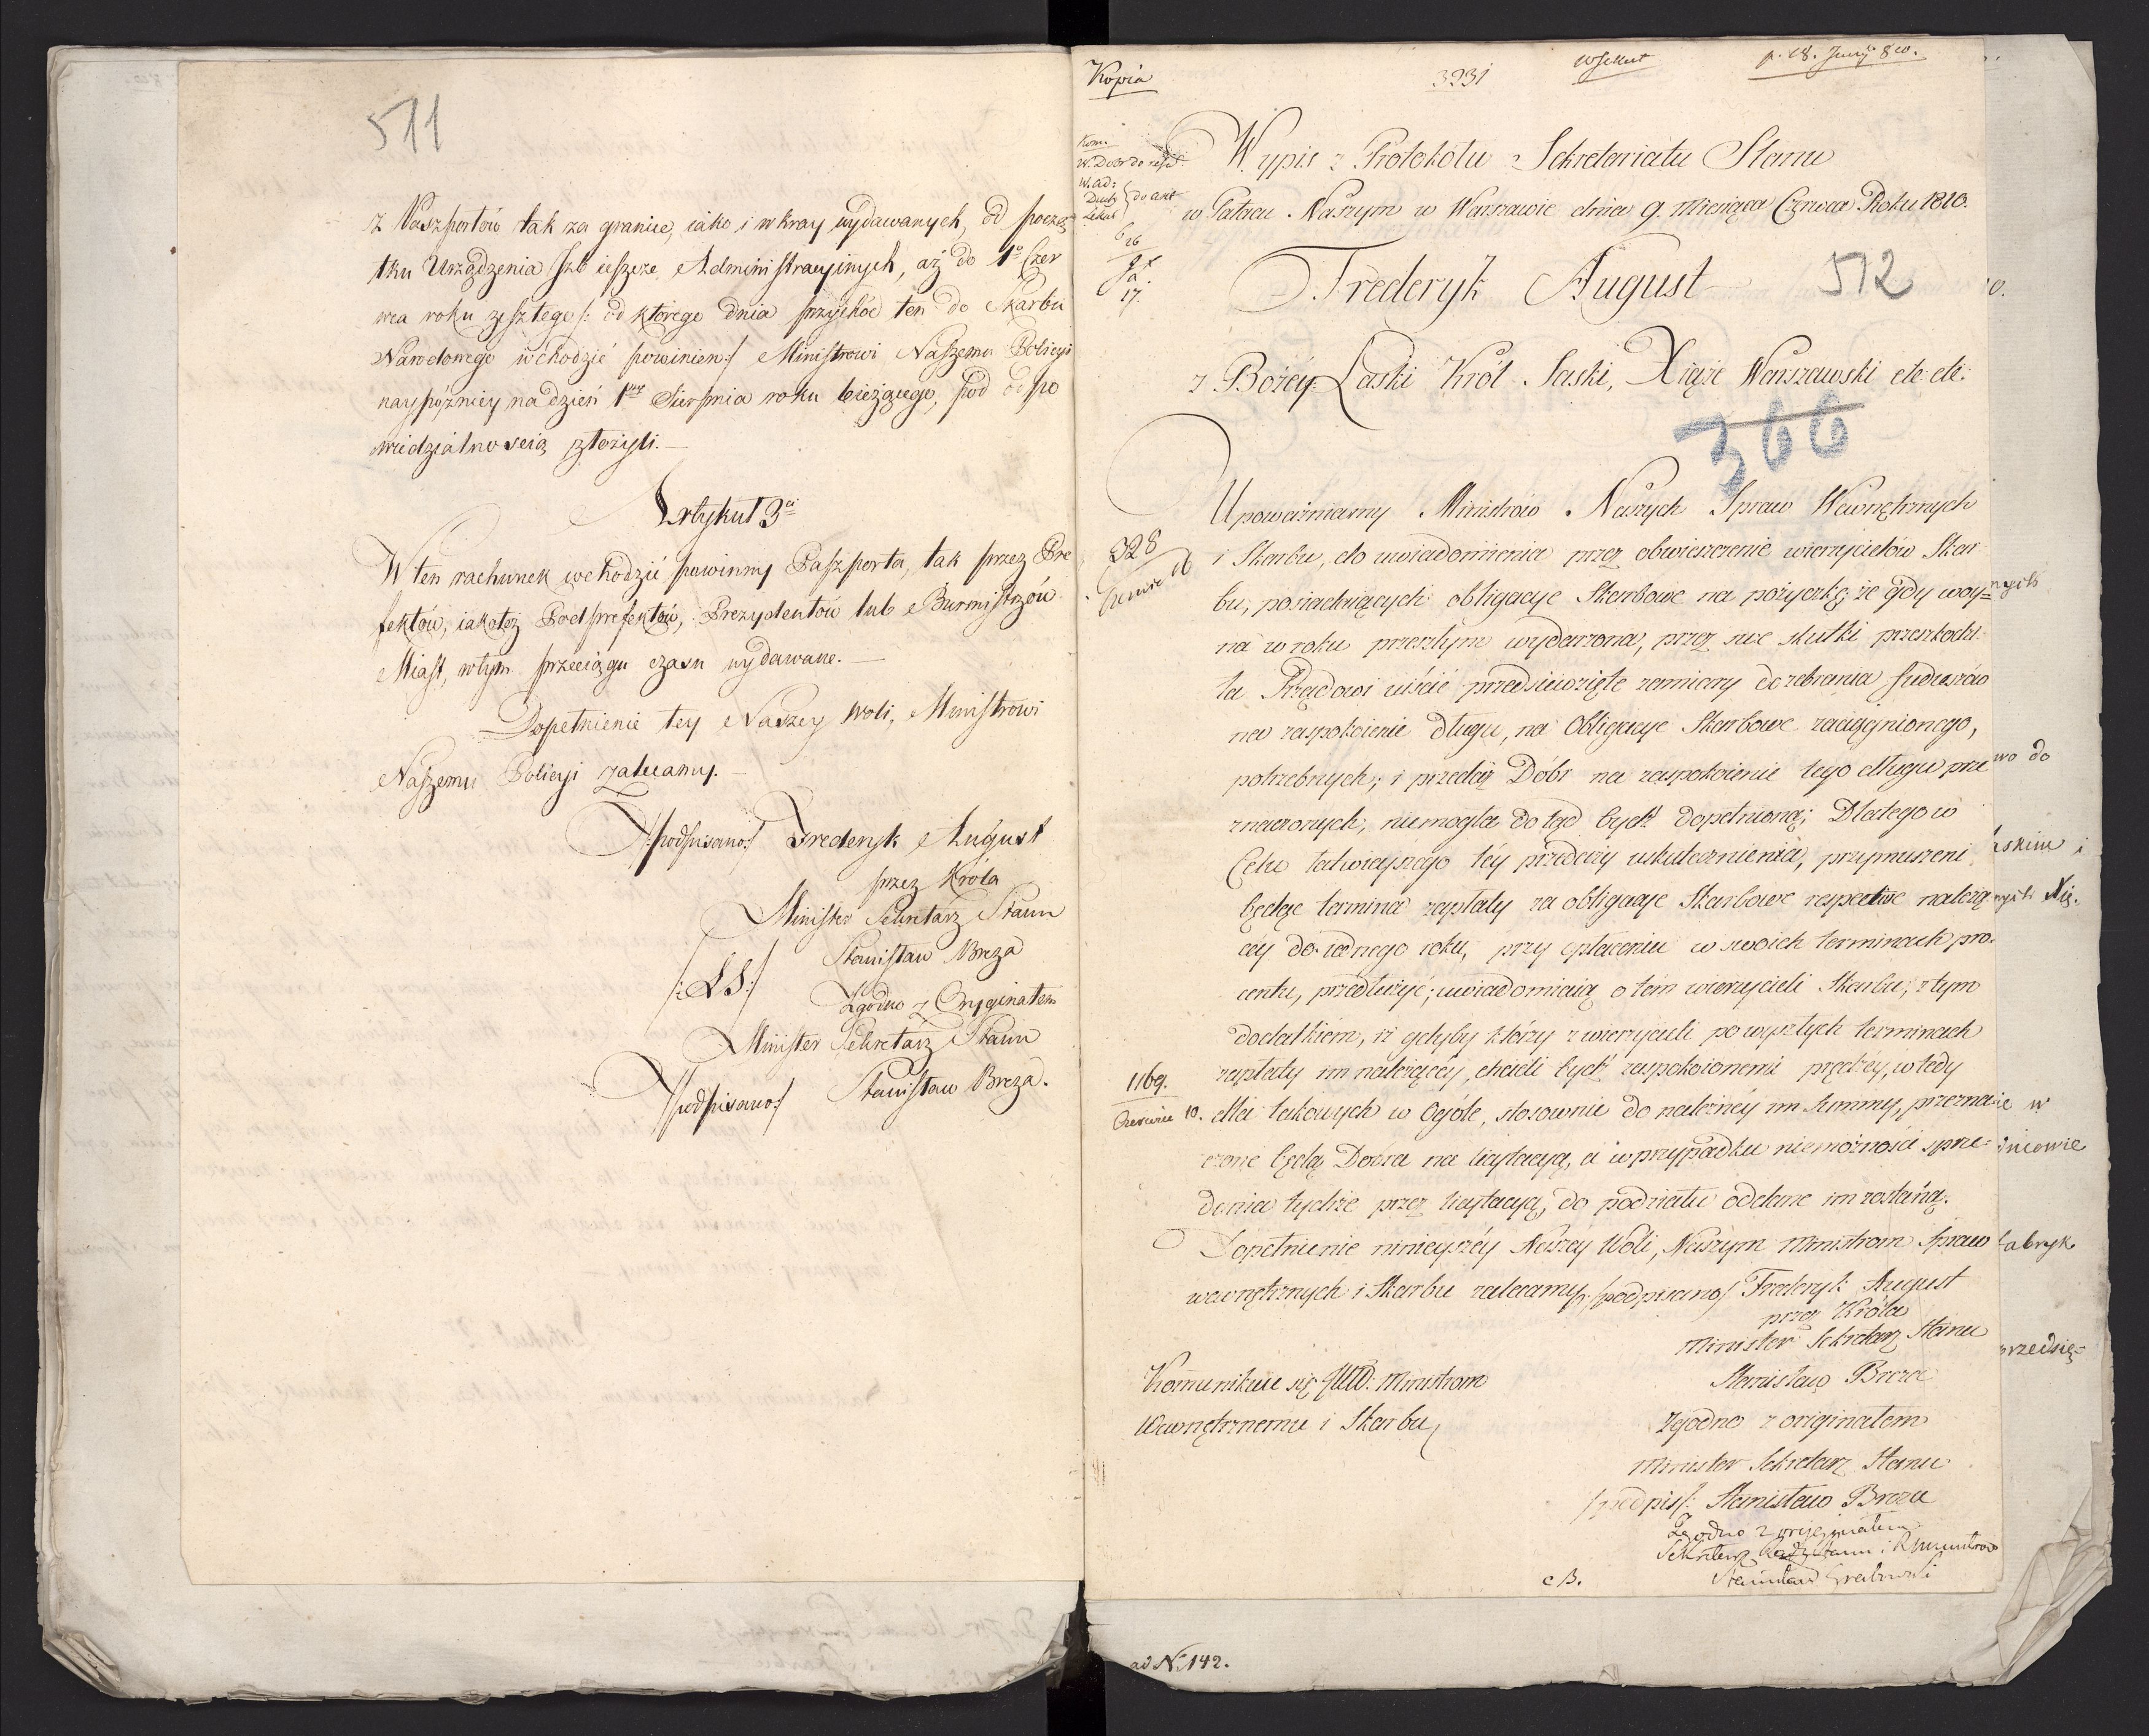 511
z Paszportów tak za granice, iako i w kray wydawanych, od począ
tku Urządzenia Izb ieszcze Administracyinych, aż do 1o Czer
wca roku zeszłego /: od którego dnia przychód ten do Skarbu
Narodowego wchodzić powinien :/ Ministrowi Naszemu Policyi
naypóźniey na dzień 1go Sierpnia roku bieżącego, pod odpo
wiedzialnością złożyli.—
Artykuł 3ci
W ten rachunek wchodzić powinny Paszporta, tak przez Pre
fektów, iakoteż Podprefektów, Prezydentów lub Burmistrzów
Miast, w tym przeciągu czasu wydawane.—
Dopełnienie tey Naszey Woli, Ministrowi
Naszemu Policyi zalecamy.—
/:podpisano:/ Frederyk August
przez Króla
Minister Sekretarz Stanu
Stanisław Breza
/:LS:/
Zgodno z Oryginałem
Minister Sekretarz Stanu
/podpisano:/ Stanisław Breza.
Kopia
3231
p. 18. Juny 810.
Wypis z Protokołu Sekretariatu Stanu
w Pałacu Naszym w Warszawie dnia 9. Miesiąca Czerwca Roku 1810.
Frederyk August
512
z Bożéy Łaski Król Saski, Xiąże Warszawski etc: etc:
366
Upoważniamy Ministrów Naszych Spraw Wewnętrznych
328
i Skarbu, do uwiadomienia przez obwieszczenie wierzycielów Skar
bu, posiadaiących obligacye Skarbowe na pożyczkę, że gdy woy=
na w roku przeszłym wydarzona, przez swe skutki przeszkodzi
ła Rządowi uiścić przedsięwzięte zamiary do zebrania funduszów
na zaspokoienie długu, na Obligacye Skarbowe zaciągnionego,
potrzebnych; i przedaż Dóbr na zaspokoienie tego długu prze
znaczonych, niemogła dotąd bydź dopełnioną; Dlatego w
Celu łatwieyszego téy przedaży uskutecznienia, przymuszeni
będąc termina zapłaty za obligacye Skarbowe respective należą
céy do iednego roku, przy opłaceniu w swoich terminach pro
centu, przedłużyć; uwiadomiaią o tém wierzycieli Skarbu; z tym
dodatkiem, iż gdyby którzy z wierzycieli po wyszłych terminach
zapłaty im należącéy, chcieli bydź zaspokoionemi prędzéy, wtedy
1169.
Czerwca 10.
dla takowych w Ogóle, stosownie do należnéy im Summy, przezna
czone będą Dobra na licytacyą, a w przypadku niemożności sprze=
dania tychże przez licytacyą, do podziału oddane im zostaną.
Dopełnienie ninieyszéy Naszéy Woli, Naszym Ministrom Spraw
wewnętrznych i Skarbu zalecamy. /podpisano/ Frederyk August
przez Króla
Minister Sekretarz Stanu
Stanisław Breza
Kommunikuie się JWW. Ministrom
Wewnętrznemu i Skarbu,
Zgodno z originałem
Minister Sekretarz Stanu
/podpis/: Stanisław Breza
Zgodno z oryginałem
Sekretarz Rady Stanu i Ministrów
Stanisław Grabowski
c B.
ad N. 142.